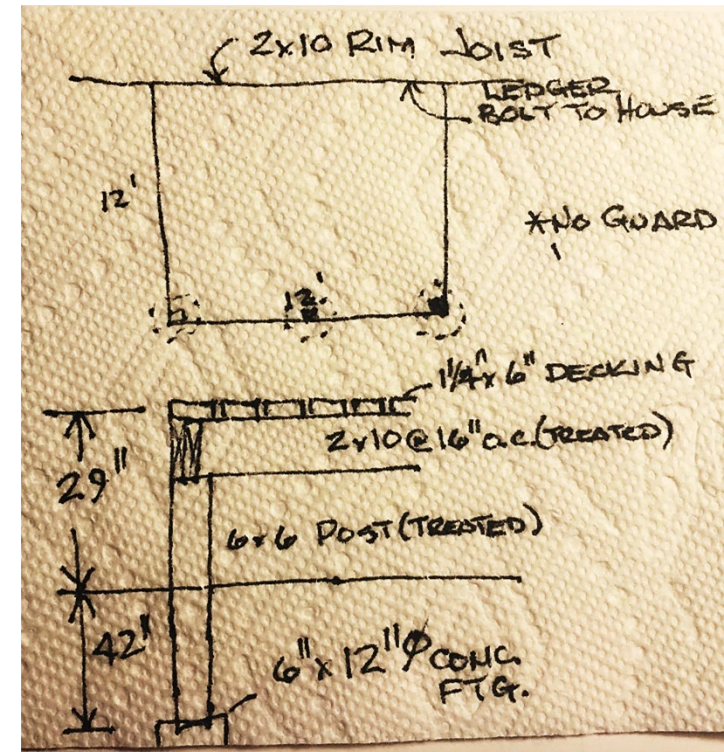 2x10 RIM JOIST
LEDGER
BOLT TO HOUSE
12'
*NO GUARD
12'
1 1/4" x 6" DECKING
2x10 @ 16" o.c. (TREATED)
29"
6x6 POST (TREATED)
42"
6" x 12" Ø CONC.
FTG.